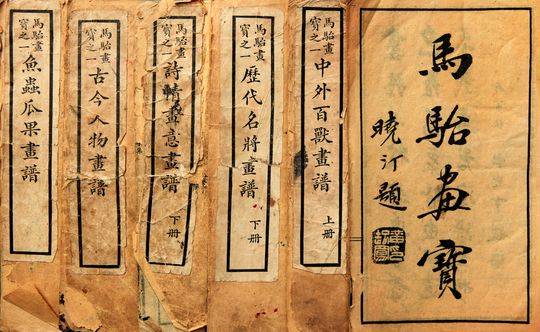 馬駘畫寶
曉汀題
馬駘畫
寶之一
中外百獸畫譜
上册
馬駘畫
寶之一
歷代名將畫譜
下册
馬駘畫
寶之一
詩情畫意畫譜
下册
馬駘畫
寶之一
古今人物畫譜
馬駘畫
寶之一
魚蟲瓜果畫譜